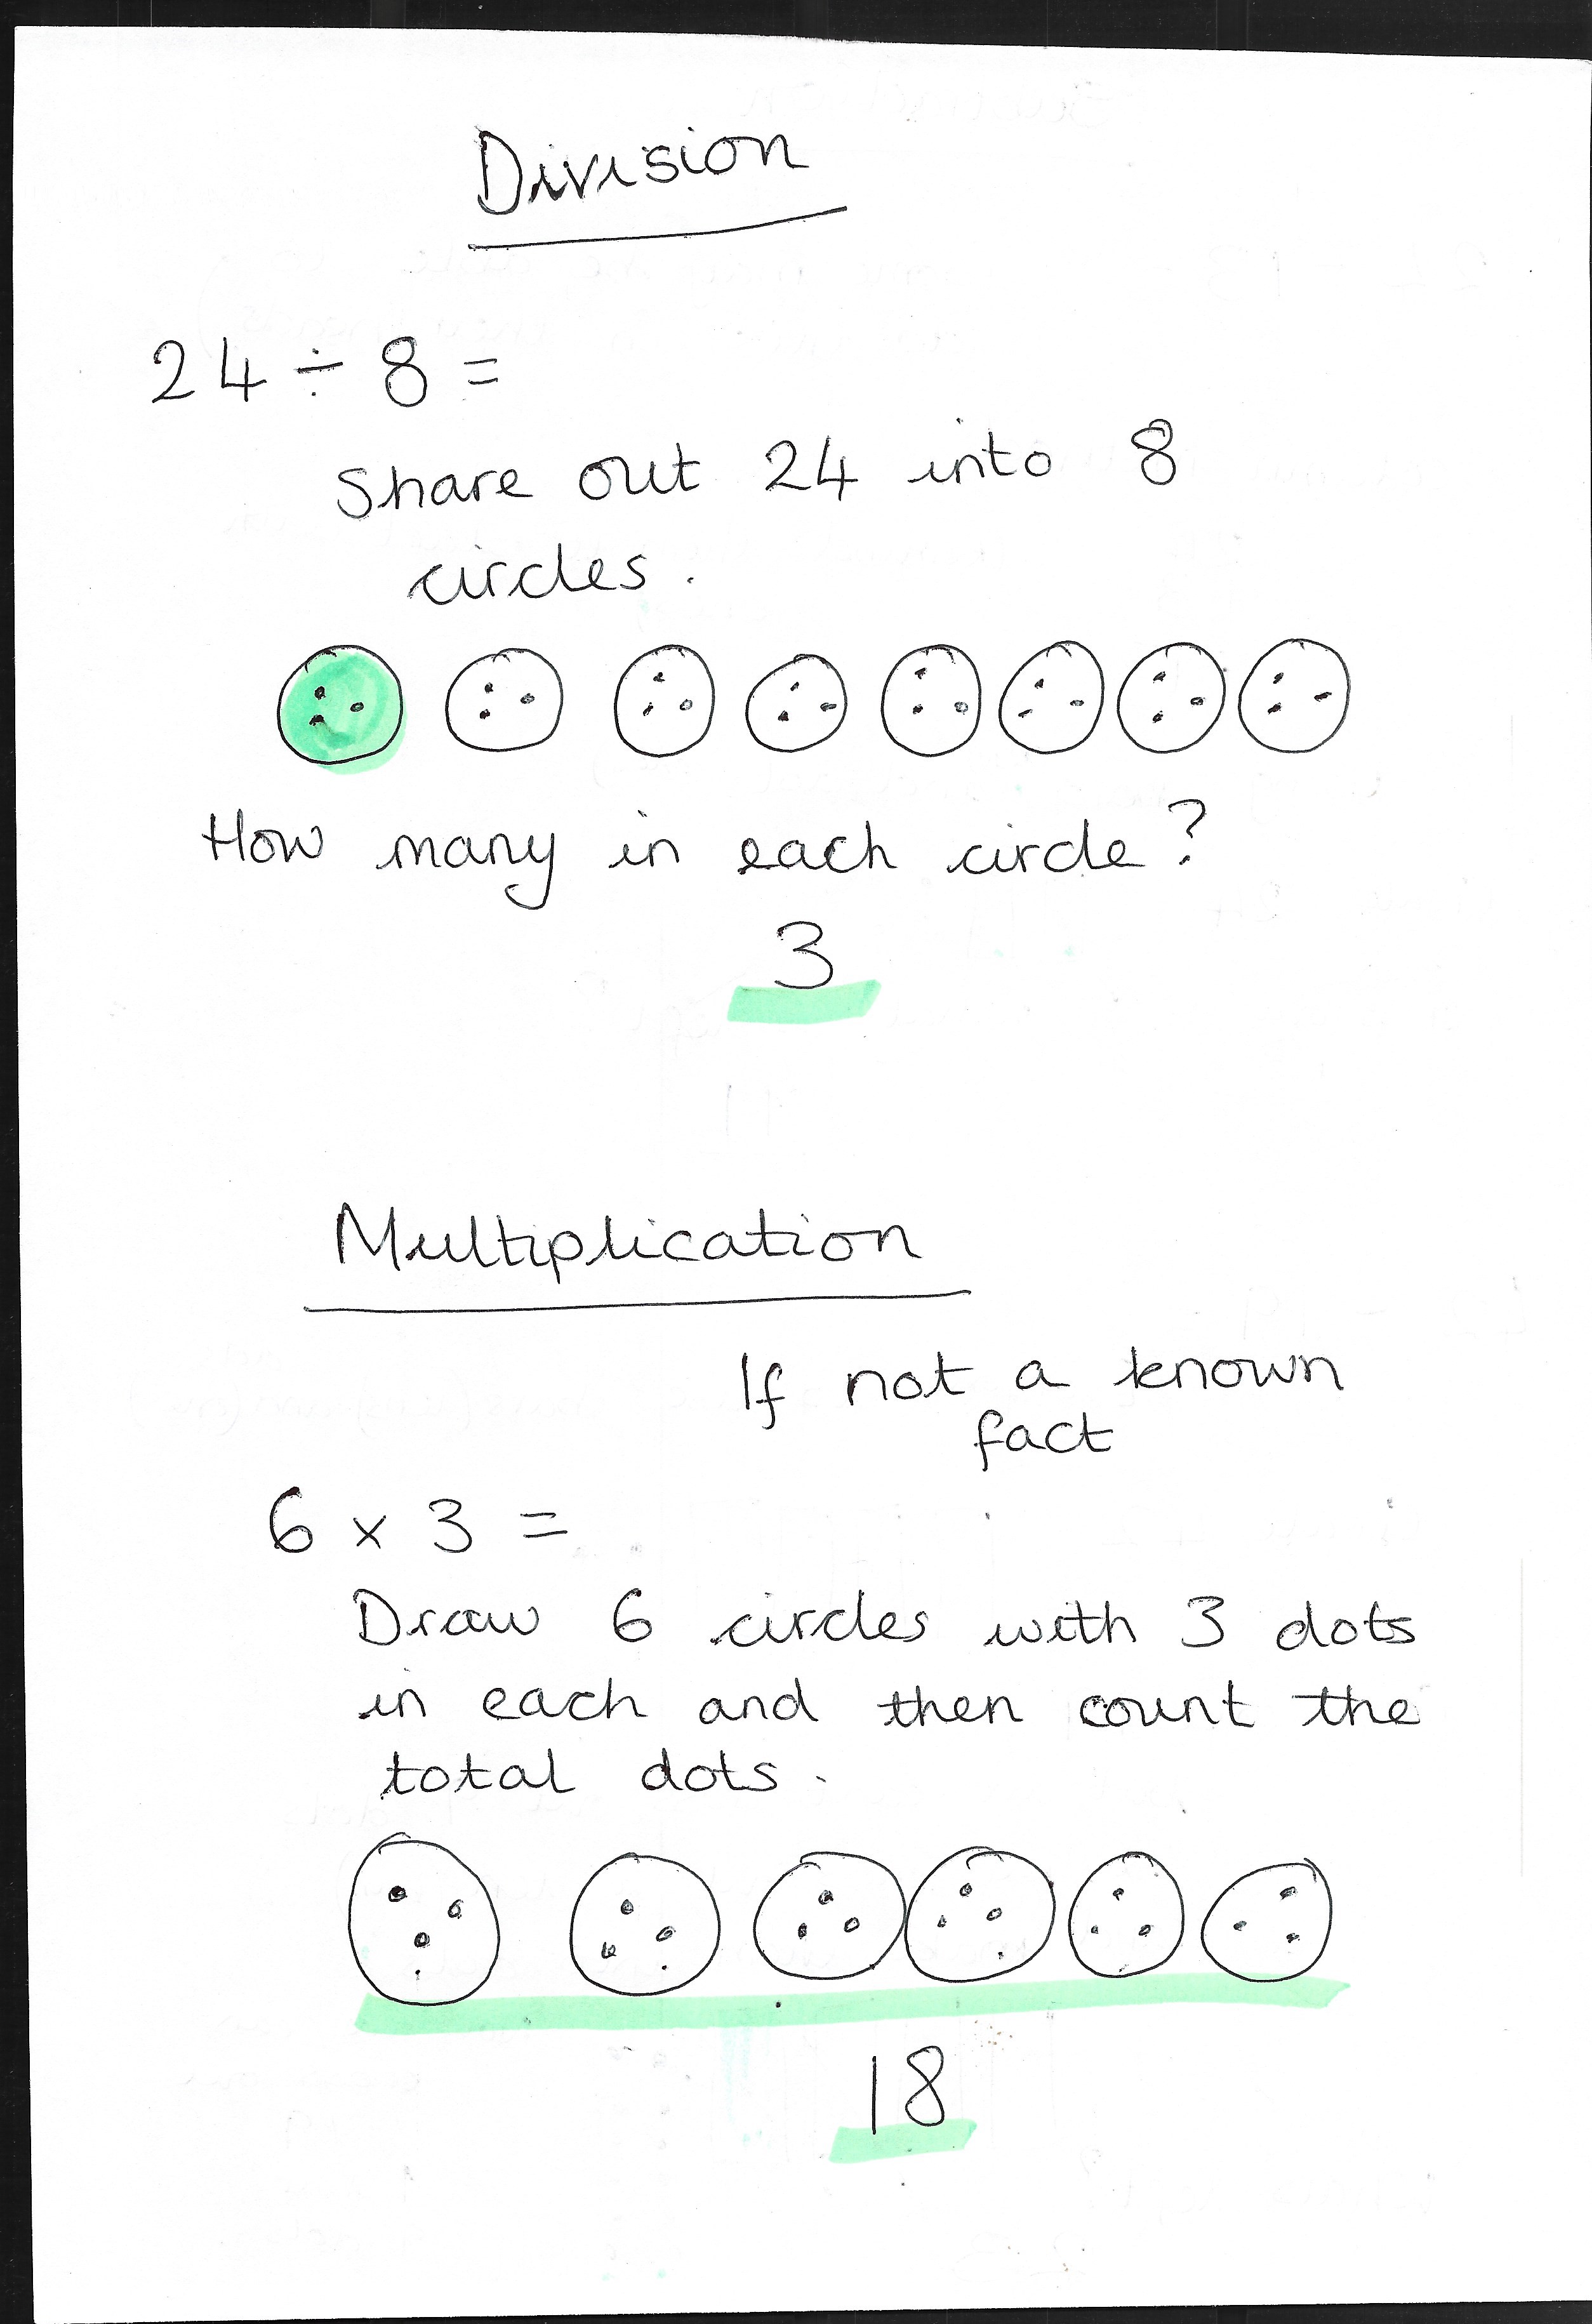 Division
24 ÷ 8 =
Share out 24 into 8
circles.
How many in each circle?
3
Multiplication
If not a known
fact
6 x 3 =
Draw 6 circles with 3 dots
in each and then count the
total dots.
18